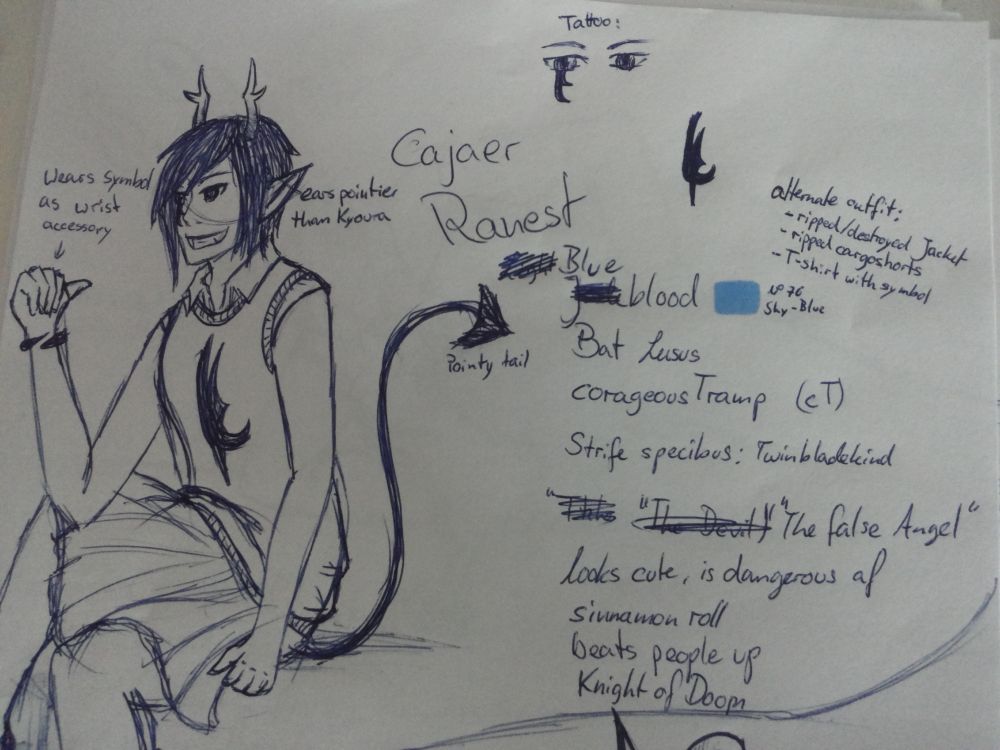 Tattoo:
Wears symbol
as wrist
accessory
ears pointier
than Kyoura
Cajaer
Ranest
alternate outfit:
- ripped/destroyed Jacket
- ripped cargoshorts
- T-shirt with symbol
Blue
blood
N° 76
Sky-Blue
Pointy tail
Bat Lusus
corageousTramp (cT)
Strife specibus: Twinbladekind
"The Devil" "The false Angel"
looks cute, is dangerous af
sinnamon roll
beats people up
Knight of Doom